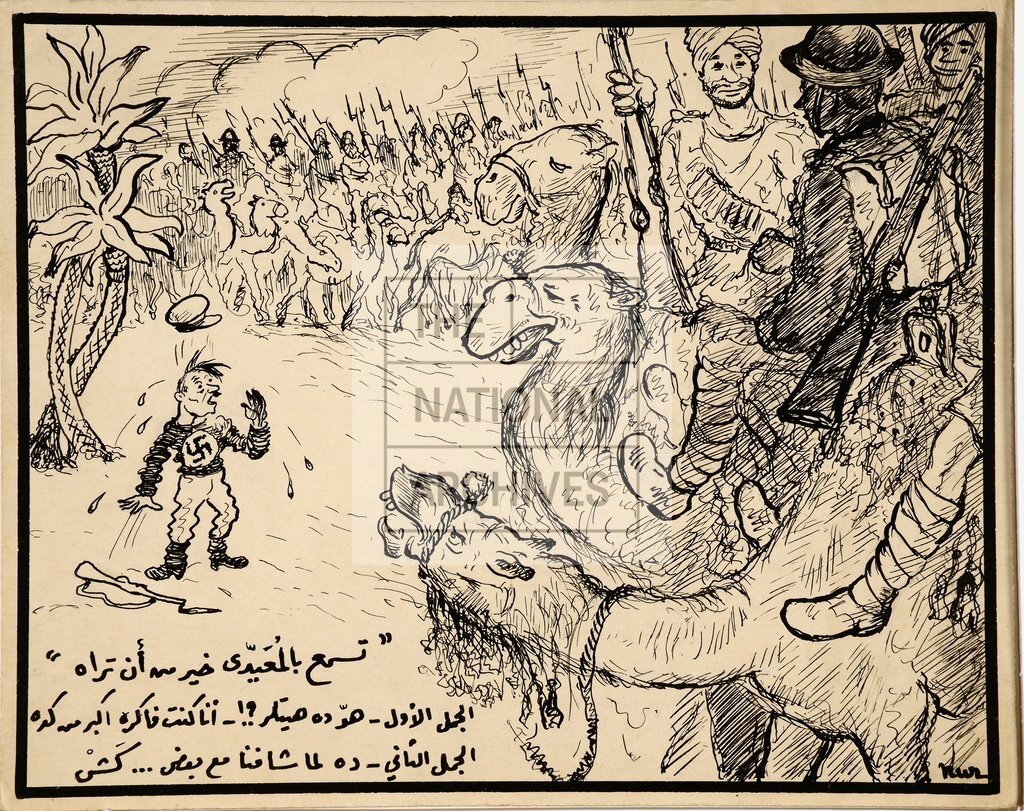 THE
NATIONAL
ARCHIVES
"تسمع بالمُعَيدّى خير من أن تراه"
الجمل الأول - هوّ ده هيتلر ?!- أنا كنت فاكره اكبر من كده
الجمل الثاني - ده لما شافنا مع بعض ... كَشّ